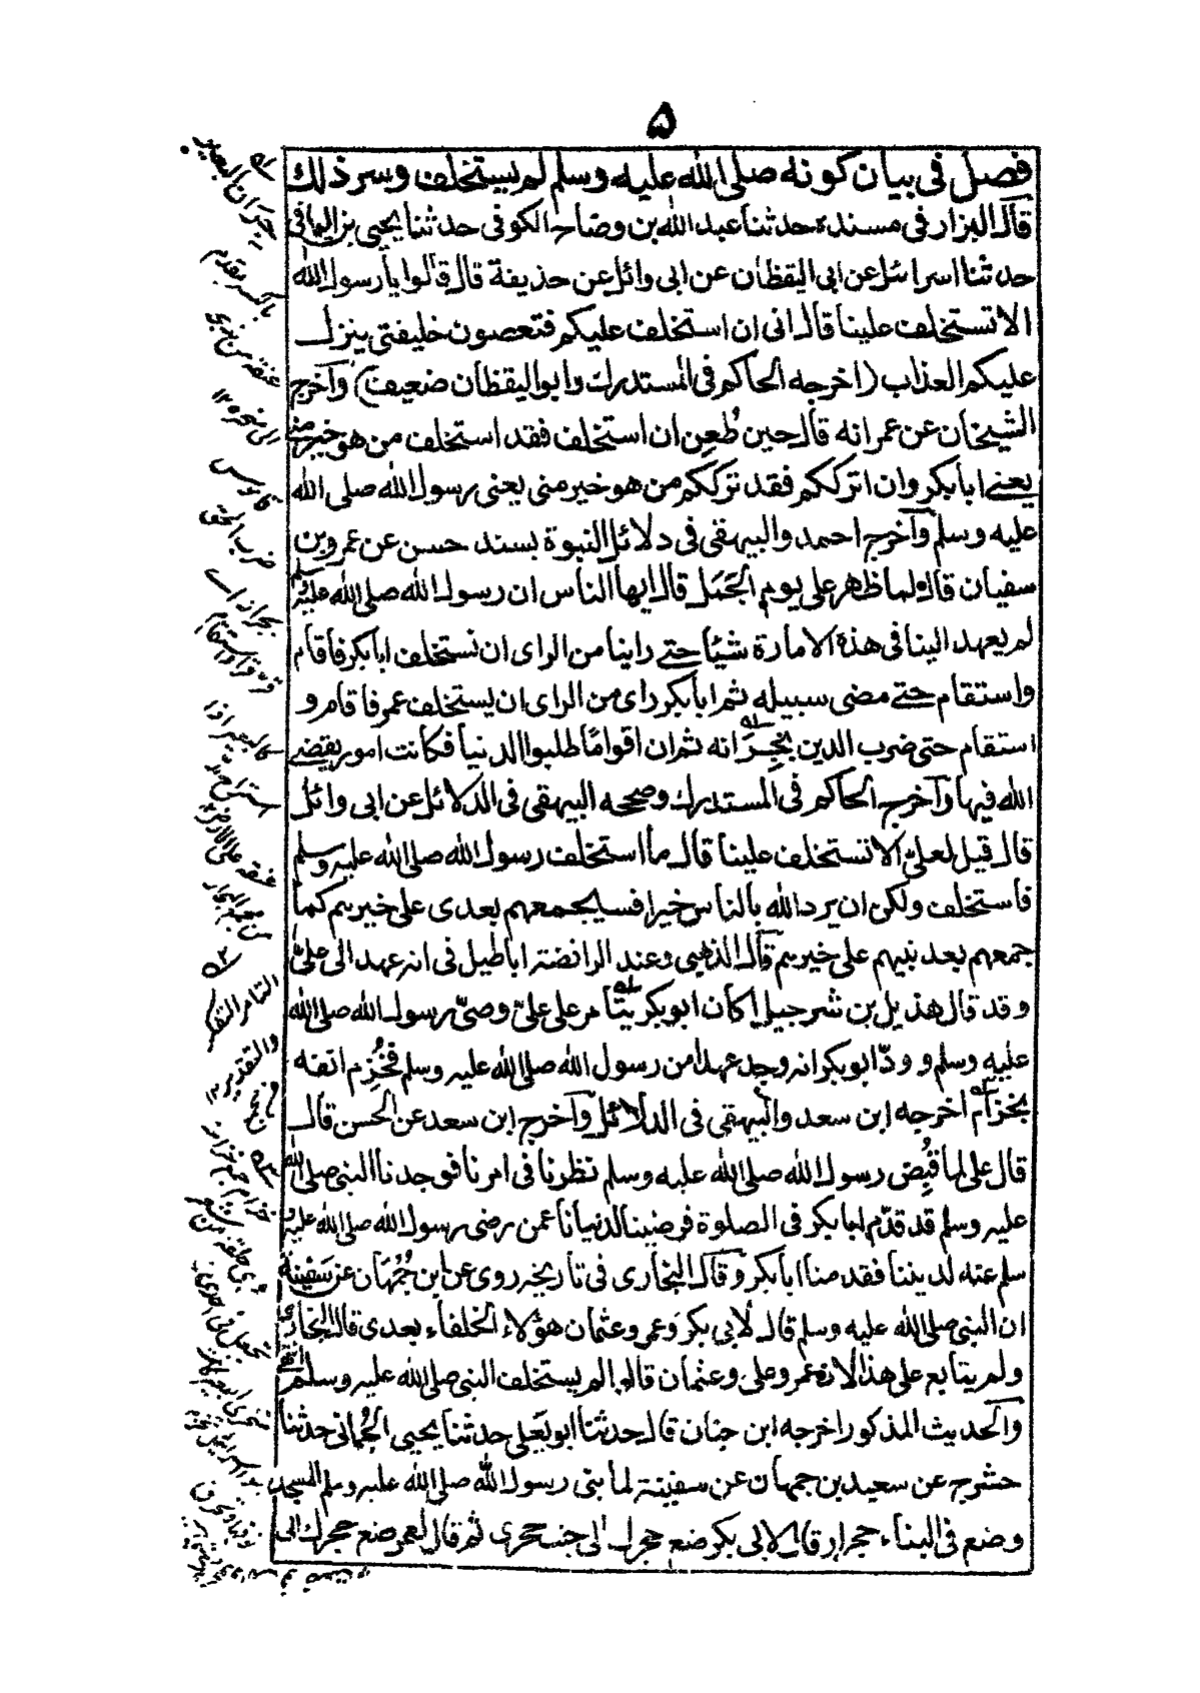 ۵
فصل فى بيان كونه صلى الله عليه وسلم لم يستخلف وسر ذلك
قال البزار فى مسنده حدثنا عبد الله بن وضاح الكوفى حدثنا يحيى بن اليمانى
حدثنا اسرائيل عن ابى اليقظان عن ابى وائل عن حذيفة قال قالوا يا رسول الله
الا تستخلف علينا قال انى ان استخلف عليكم فتعصون خليفتى ينزل
عليكم العذاب (اخرجه الحاكم فى المستدرك وابو اليقظان ضعيف) وآخرج
الشيخان عن عمر انه قال حين طُعِن ان استخلف فقد استخلف من هو خير منى
يعنے ابا بكر وان اترككم فقد ترككم من هو خير منى يعنى رسول الله صلى الله
عليه وسلم وآخرج احمد والبيهقى فى دلائل النبوة بسند حسن عن عمرو بن
سفيان قال لما ظهر على يوم الجَمَل قال ايها الناس ان رسول الله صلى الله عليه وسلم
لم يعهد الينا فى هذه الامارة شيئا حتے راينا من الراى ان نستخلف ابا بكر فاقام
واستقام حتے مضى سبيله ثم ابا بكر راى من الراى ان يستخلف عمر فاقام و
استقام حتى ضرب الدين بجِرَانه ثم ان اقوامًا طلبوا الدنيا فكانت امور يقضے
الله فيها وآخرج الحاكم فى المستدرك وصححه البيهقى فى الدلائل عن ابى وائل
قال قيل لعلى الا تستخلف علينا قال ما استخلف رسول الله صلى الله عليه وسلم
فاستخلف ولكن ان يرد الله بالناس خيرا فسيجمعهم بعدى على خيرهم كما
جمعهم بعد نبيهم على خيرهم قال الذهبى وعند الرافضة اباطيل فى انه عهد الى علىّ
وقد قال هذيل بن شرحبيل أكان ابو بكر يتآمر على علىّ وصىّ رسول الله صلى الله
عليه وسلم وودّ ابو بكر انه وجد عهدا من رسول الله صلى الله عليه وسلم فخُزِم انفه
بخزام اخرجه ابن سعد والبيهقى فى الدلائل وآخرج ابن سعد عن الحسن قال
قال على لما قُبِض رسول الله صلى الله عليه وسلم نظرنا فى امرنا فوجدنا النبى صلى الله
عليه وسلم قد قدّم ابا بكر فى الصلوة فرضينا لدنيانا عمن رضى رسول الله صلى الله عليه و
سلم عنه لديننا فقدمنا ابا بكر وقال البخارى فى تاريخه روى عن ابن جُمْهَان عن سَفِينة
ان النبى صلى الله عليه وسلم قال لابى بكر وعمر وعثمان هؤلاء الخلفاء بعدى قال البخارى
ولم يتابع على هذا لان عمر وعلى وعثمان قالوا لم يستخلف النبى صلى الله عليه وسلم انتهى
والحديث المذكور اخرجه ابن حبان قال حدثنا ابو يَعلى حدثنا يحيى الحِمانى حدثنا
حشرج عن سعيد بن جمهان عن سفينة لما بنى رسول الله صلى الله عليه وسلم المسجد
وضع فى البناء حجرا وقال لابى بكر ضع حجرك الى جنب حجرى ثم قال لعمر ضع حجرك الى
جران البعير
بالكسر مقدم
عنقه من
قاموس
ضرب الحق
بجرانه اے
قرّ واستقام